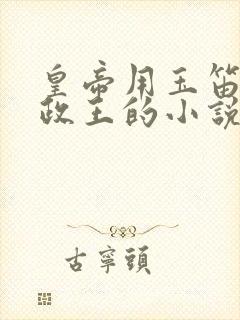 皇帝用玉笛
政王的小說
古寧頭